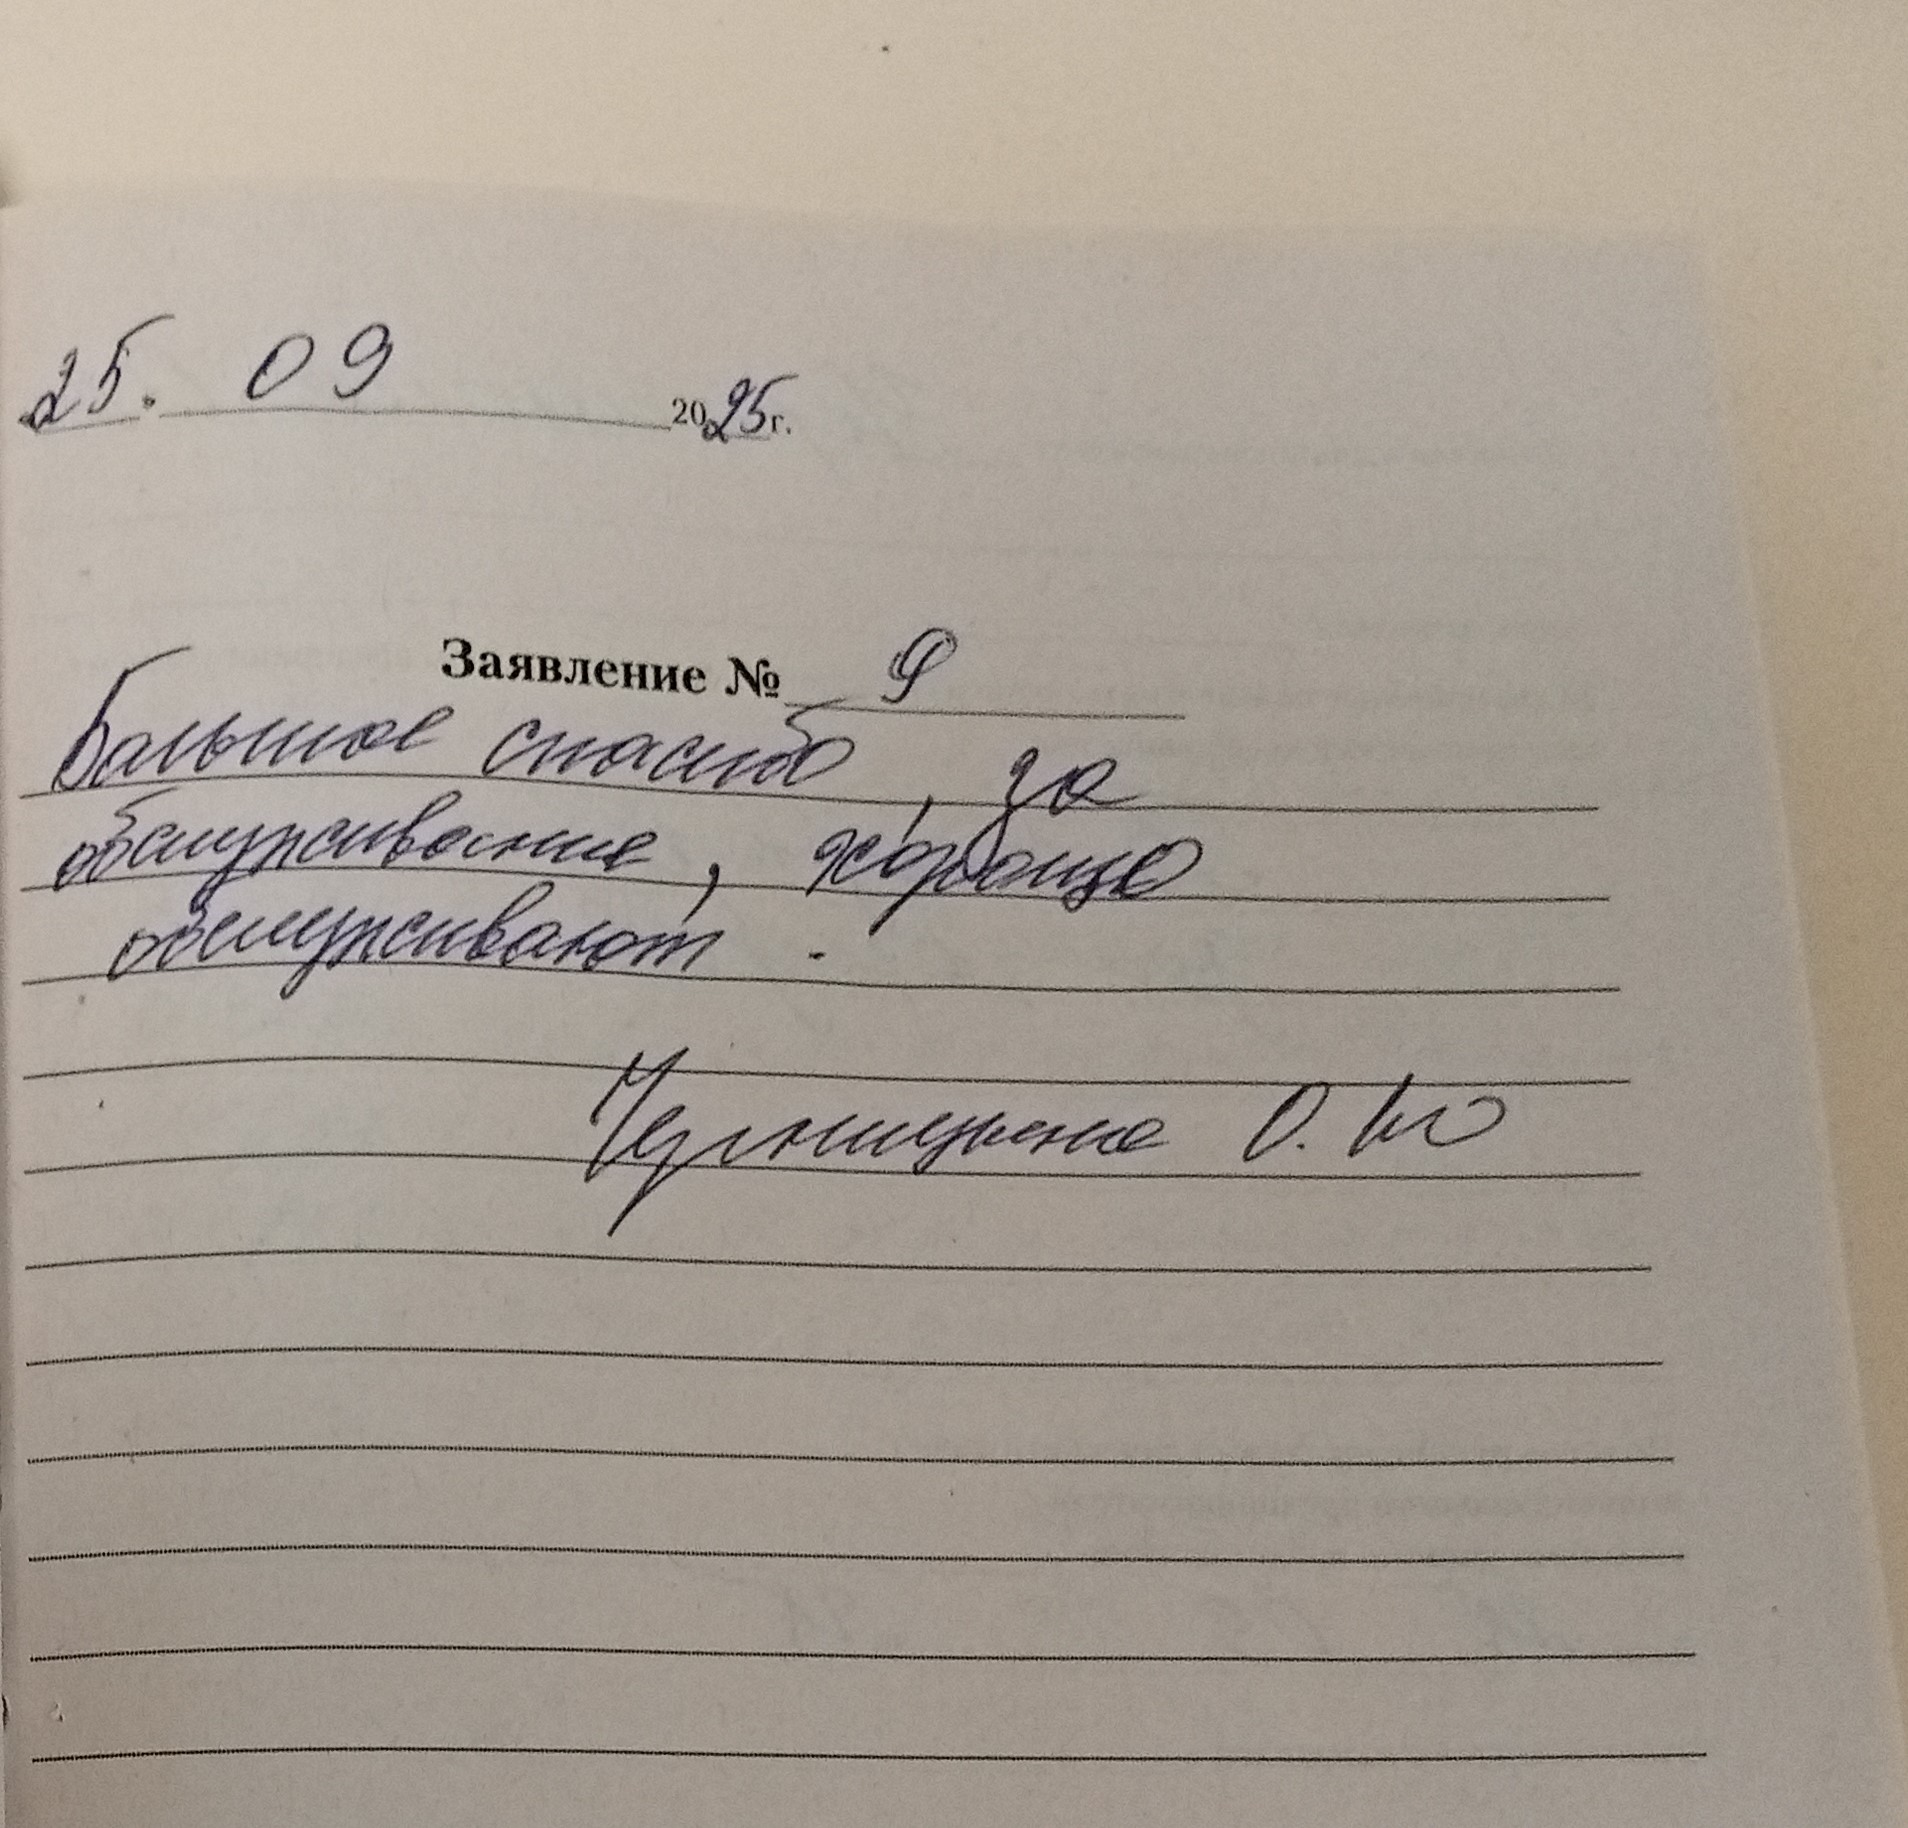 25. 09 2025г.
Заявление № 9
Большое спасибо, за
обслуживание, хорошо
обслуживают.
О. Ю